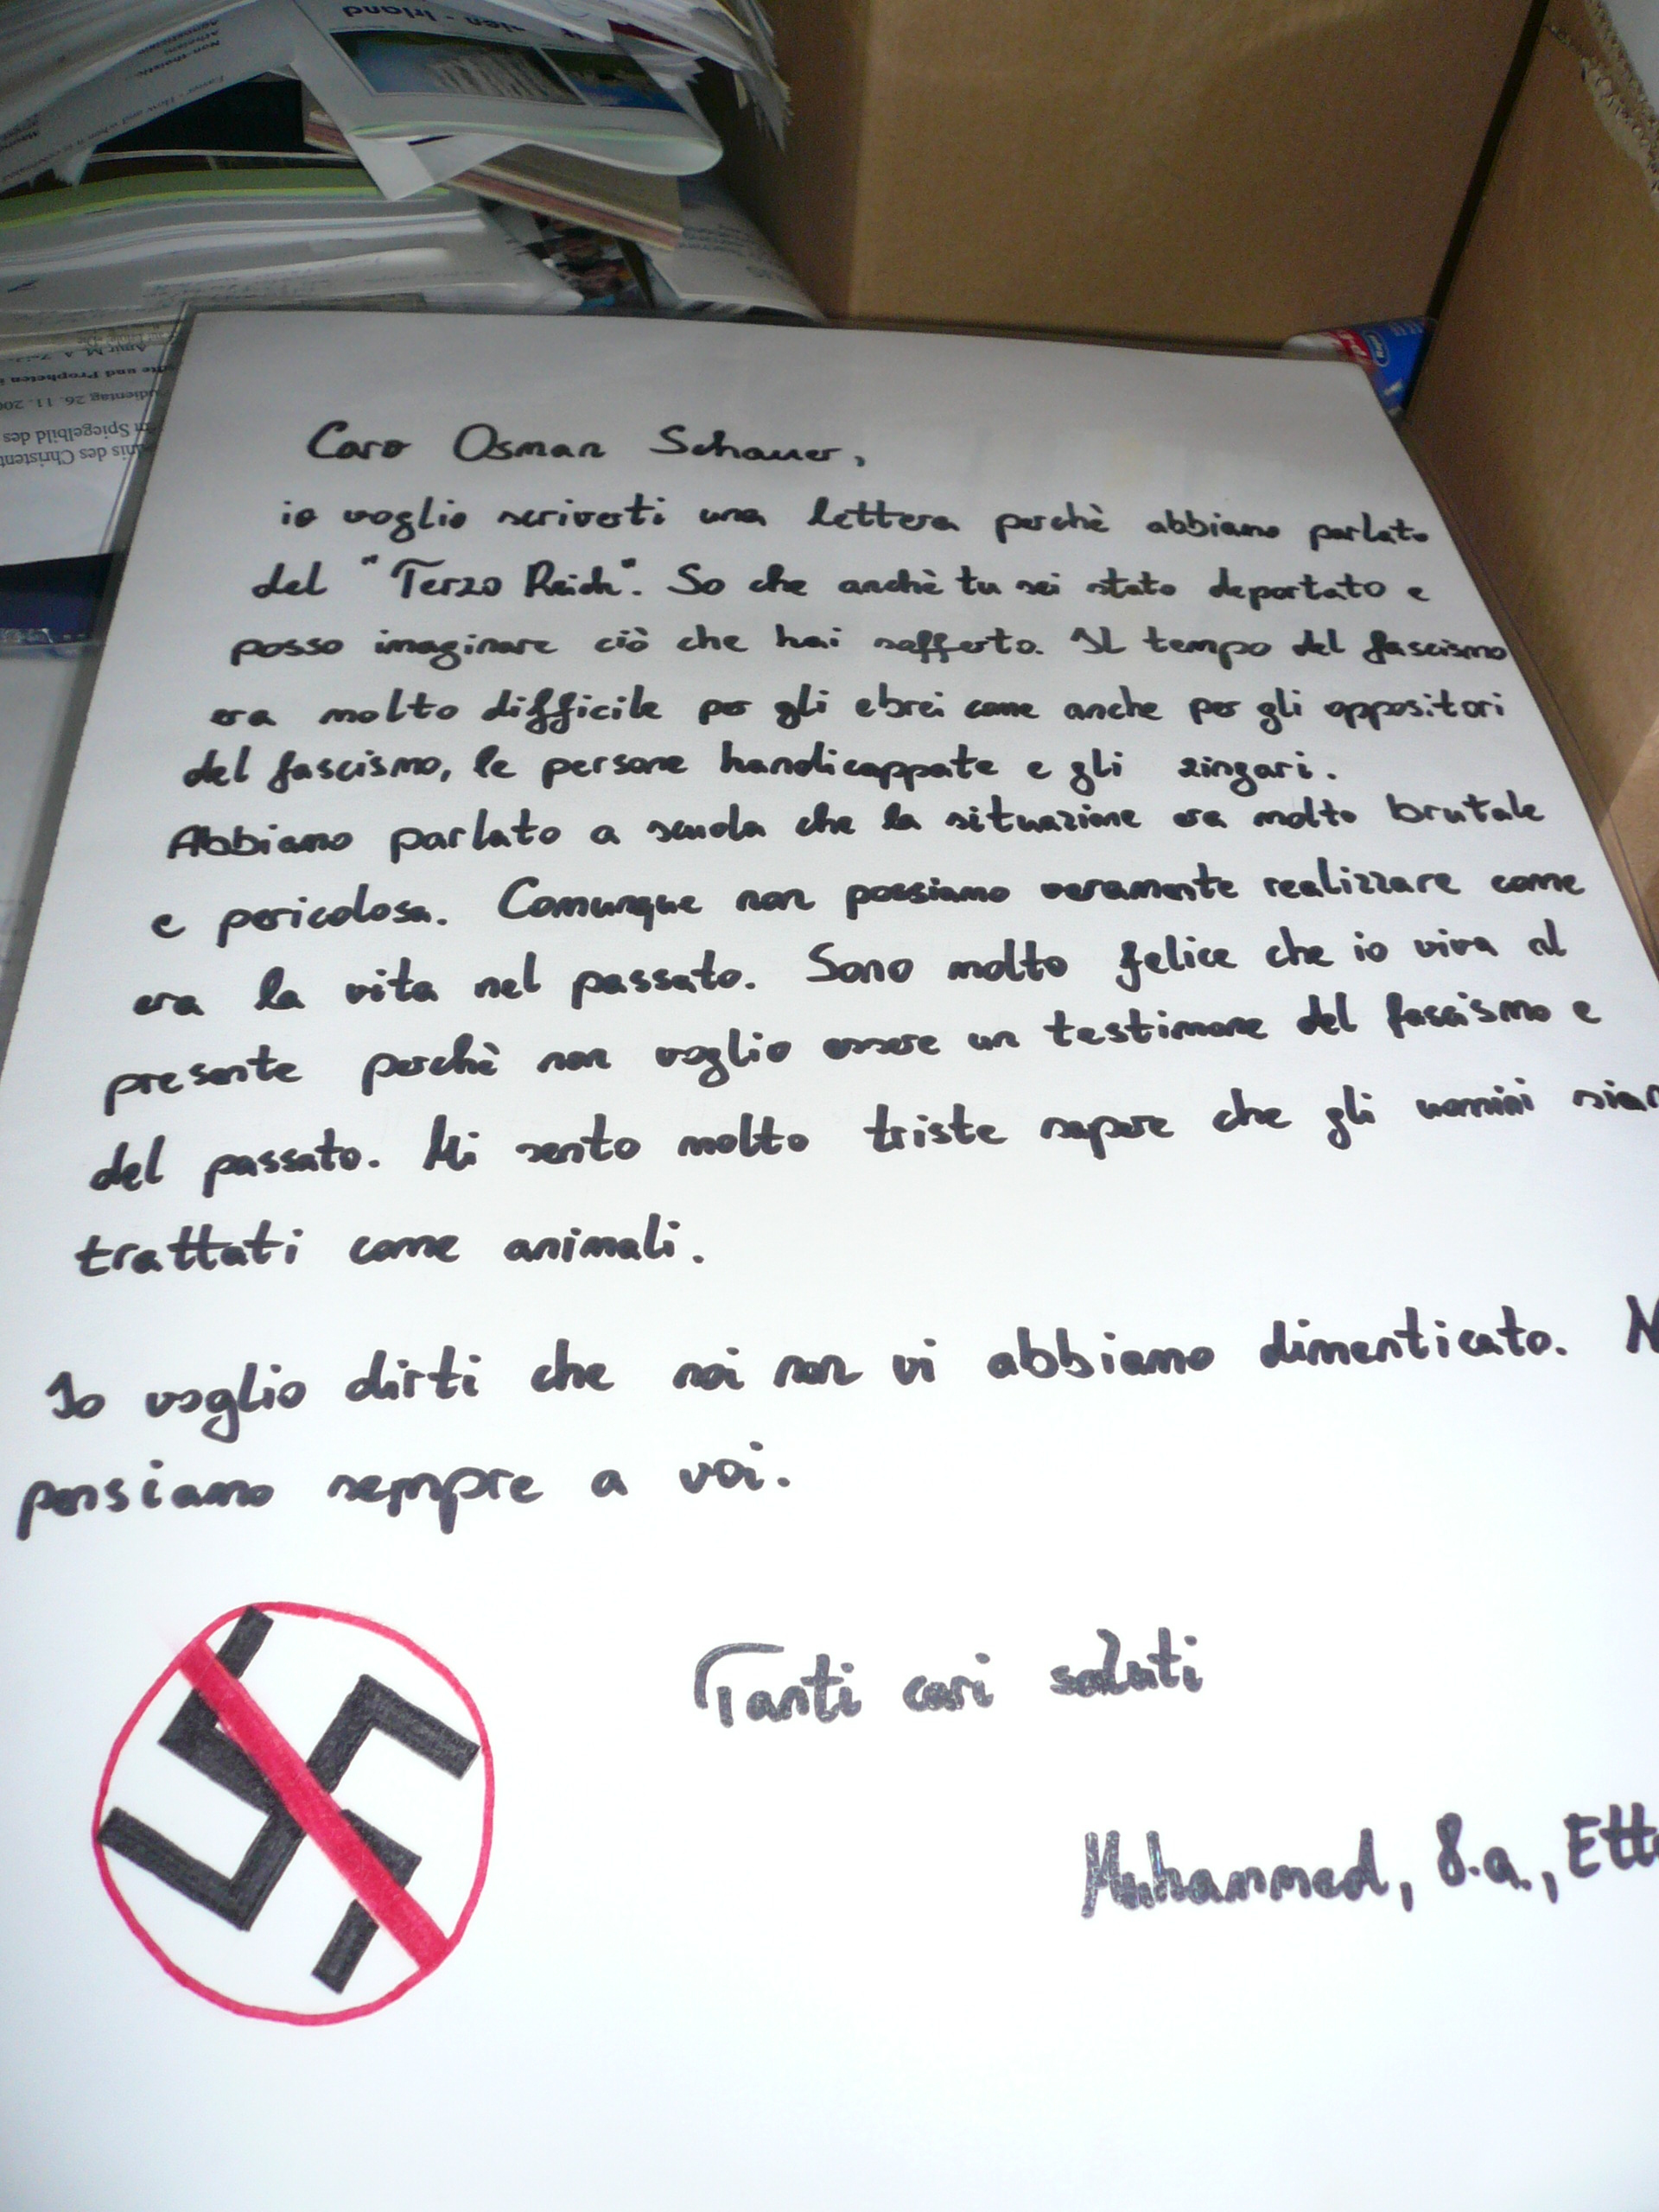 Caro Osman Schauer,
io voglio scriverti una lettera perchè abbiamo parlato
del "Terzo Reich". So che anchè tu sei stato deportato e
posso imaginare ciò che hai sofferto. Il tempo del fascismo
era molto difficile per gli ebrei come anche per gli oppositori
del fascismo, le persone handicappate e gli zingari.
Abbiamo parlato a scuola che la situazione era molto brutale
e pericolosa. Comunque non possiamo veramente realizzare come
era la vita nel passato. Sono molto felice che io viva al
presente perchè non voglio essere un testimone del fascismo e
del passato. Mi sento molto triste sapere che gli uomini sian
trattati come animali.
Io voglio dirti che noi non vi abbiamo dimenticato. N
pensiamo sempre a voi.
Tanti cari saluti
Muhammed, 8.a., Ett
ien - Irland
Non-theistic
nis des Christent
m Spiegelbild des
udientag 26. 11. 200
und Propheten i